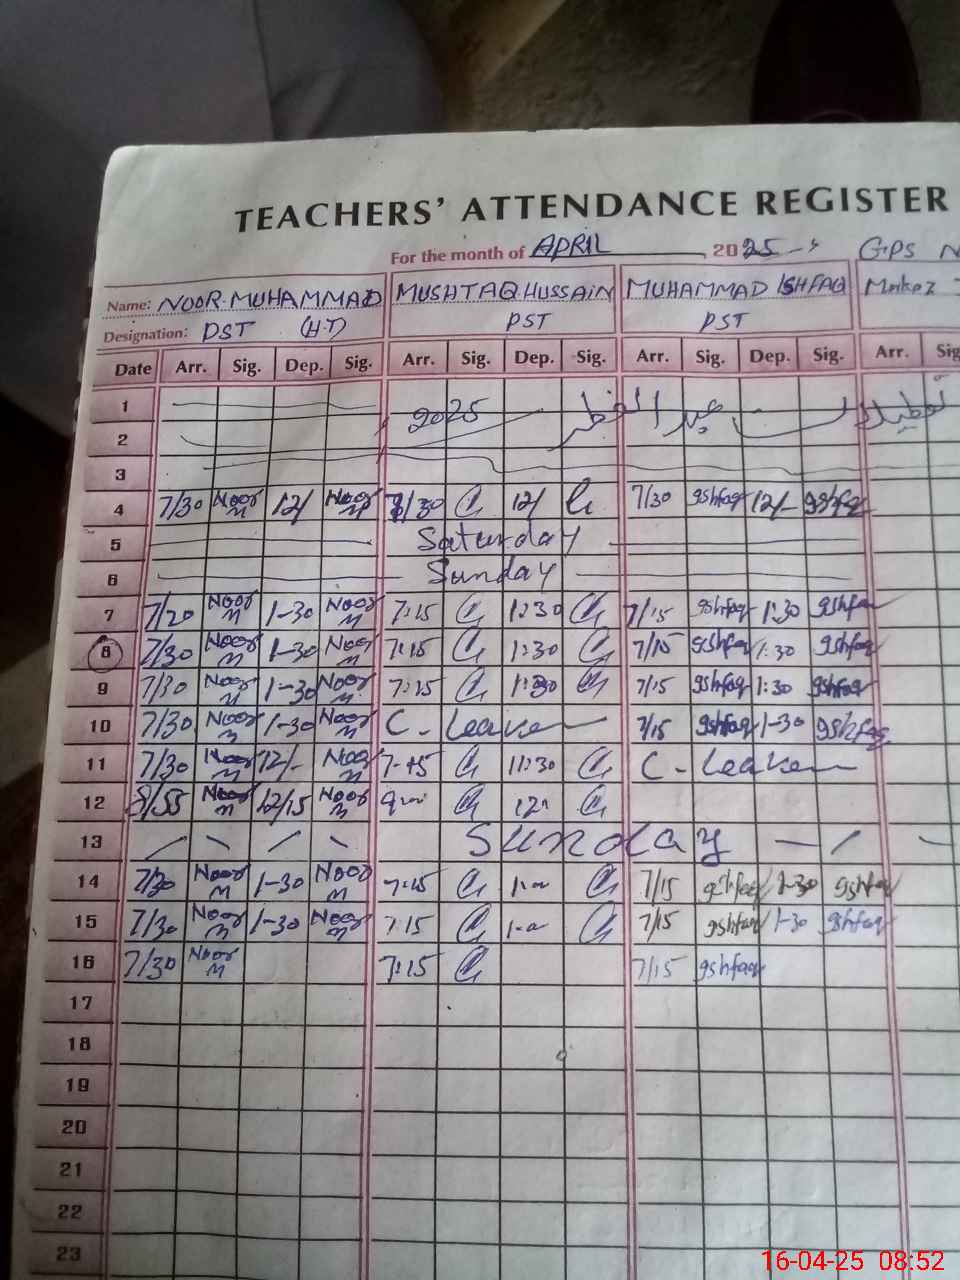 TEACHERS' ATTENDANCE REGISTER
For the month of APRIL 2025 GPS N
Name: NOOR MUHAMMAD MUSHTAQ HUSSAIN MUHAMMAD ISHFAQ
Designation: PST (H.T) PST PST
Date Arr. Sig. Dep. Sig. Arr. Sig. Dep. Sig. Arr. Sig. Dep. Sig. Arr. Sig
1 2025 عید الفطر تعطیلات
2
3
4 7/30 Noor M 12/ Noor M 12/ 7/30 gshfaq 12/- gshfaq
5 Saturday
6 Sunday
7 7/20 Noor M 1-30 Noor M 7:15 1:30 7/15 gshfaq 1:30 gshfaq
8 7/30 Noor M 1-30 Noor M 7:15 1:30 7/15 gshfaq 1:30 gshfaq
9 7/30 Noor M 1-30 Noor M 7:15 1:30 7/15 gshfaq 1:30 gshfaq
10 7/30 Noor M 1-30 Noor M C. Leave 7/15 gshfaq 1-30 gshfaq
11 7/30 Noor M 12/- Noor M 11:30 C. Leave
12 8/55 Noor M 12/15 Noor M
13 Sunday
14 7/30 Noor M 1-30 Noor M 7:15 7/15 gshfaq 1-30 gshfaq
15 7/30 Noor M 1-30 Noor M 7:15 7/15 gshfaq 1-30 gshfaq
16 7/30 Noor M 7:15 7/15 gshfaq
17
18
19
20
21
22
23
16-04-25 08:52